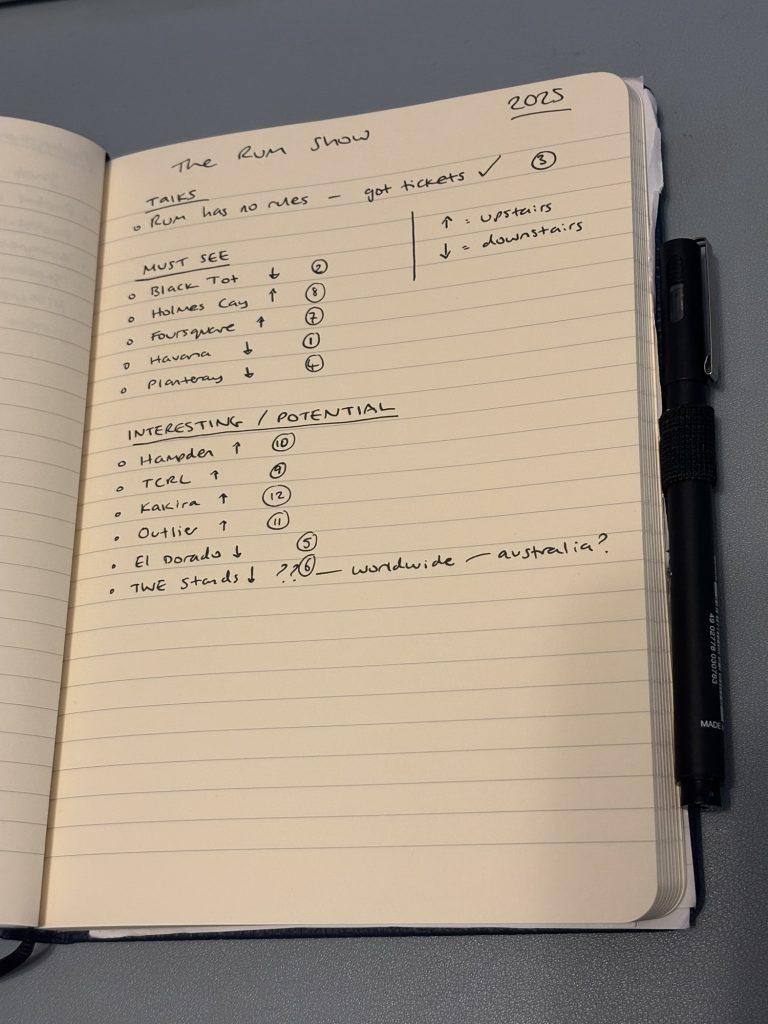 2025
The Rum Show
TALKS
• Rum has no rules – got tickets ✓ ③
↑ = upstairs
↓ = downstairs
MUST SEE
• Black Tot ↓ ②
• Holmes Cay ↑ ⑧
• Foursquare ↑ ⑦
• Havana ↓ ①
• Planteray ↓ ④
INTERESTING / POTENTIAL
• Hampden ↑ ⑩
• TCRL ↑ ⑨
• Kakira ↑ ⑫
• Outlier ↑ ⑪
• El Dorado ↓ ⑤
• TWE Stands ↓ ??⑥ — worldwide – australia?
49 02778 030763
MADE